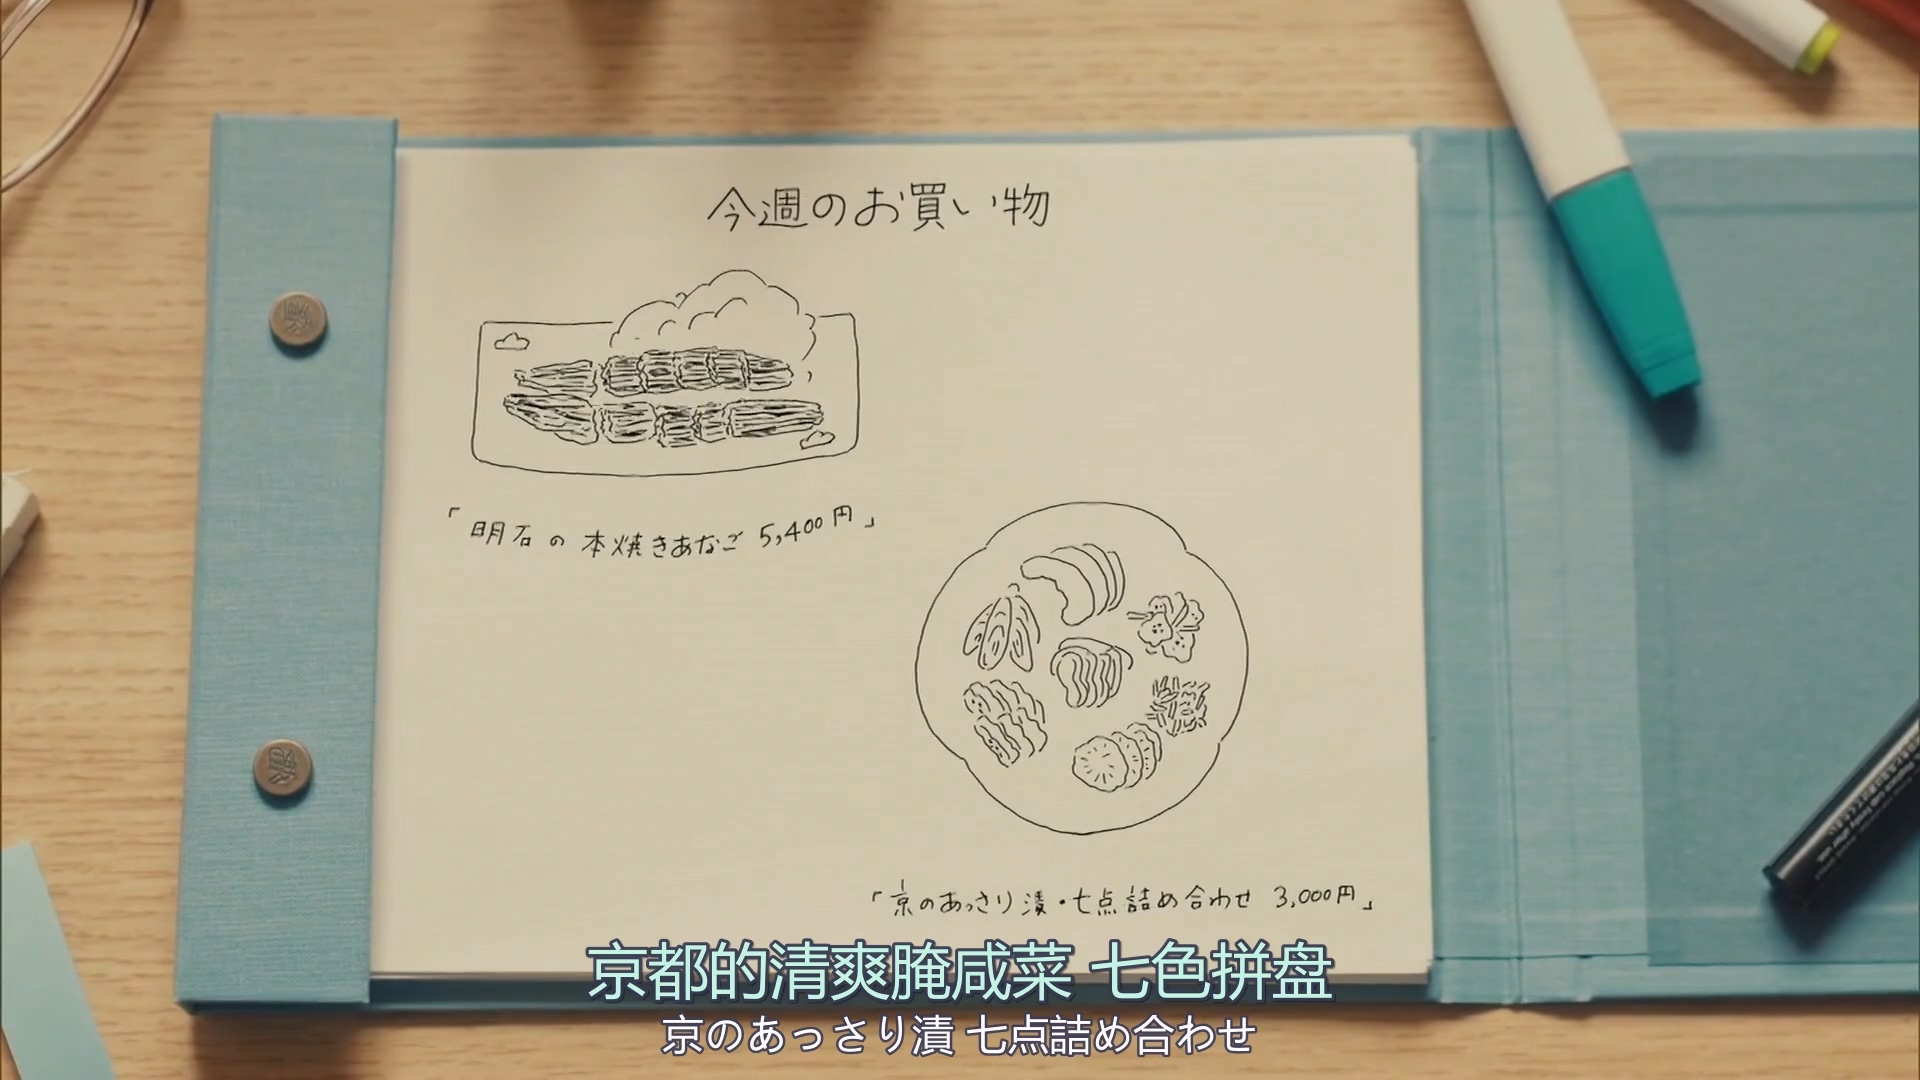 今週のお買い物
「明石の本焼きあなご 5,400円」
「京のあっさり漬・七点詰め合わせ 3,000円」
京都的清爽腌咸菜 七色拼盘
京のあっさり漬 七点詰め合わせ